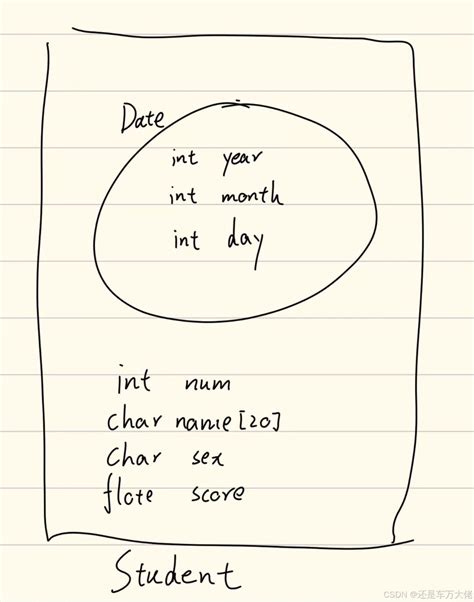 Date
int year
int month
int day
int num
char name[20]
char sex
flote score
Student
CSDN @还是车万大佬